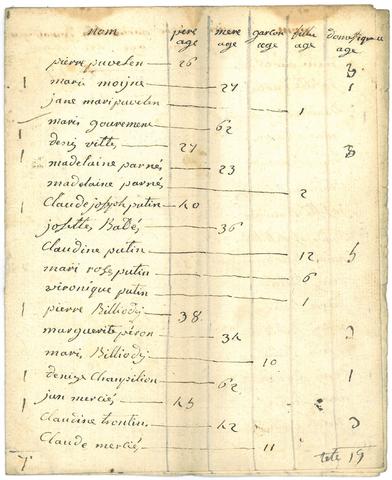 nom père age mere age garcon age fille age domestique age
pierre puvelin 26 3
marie moijne 27 1
jane mari puvelin 1
marie gouremens 62
denis vitte 27 3
madelaine parnés 23
madelaine parnés 2
Claude joseph putin 40
josette Babés 36
Claudine putin 12 5
mari rose putin 6
véronique putin 1
pierre Billiody 38
marguerite péron 34 3
marie Billiody 10
denize Champilion 62 1
jan merciés 45
Claudine trontin 42 3
Claude merciés 11
tete 19